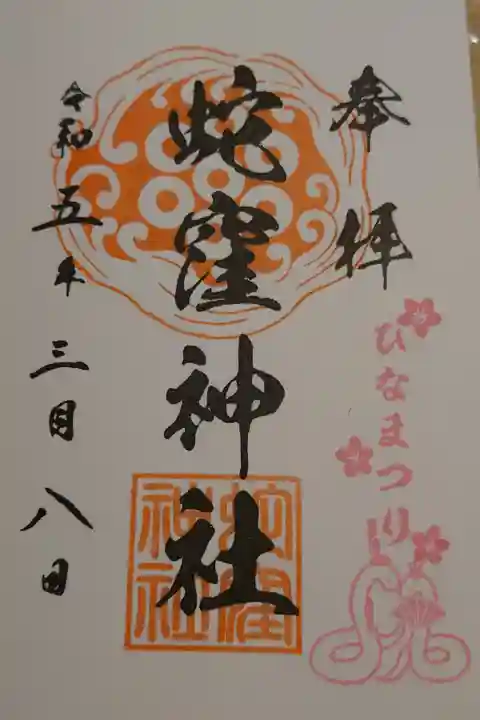 奉拝
蛇窪神社
令和五年三月八日
ひなまつり
蛇窪神社